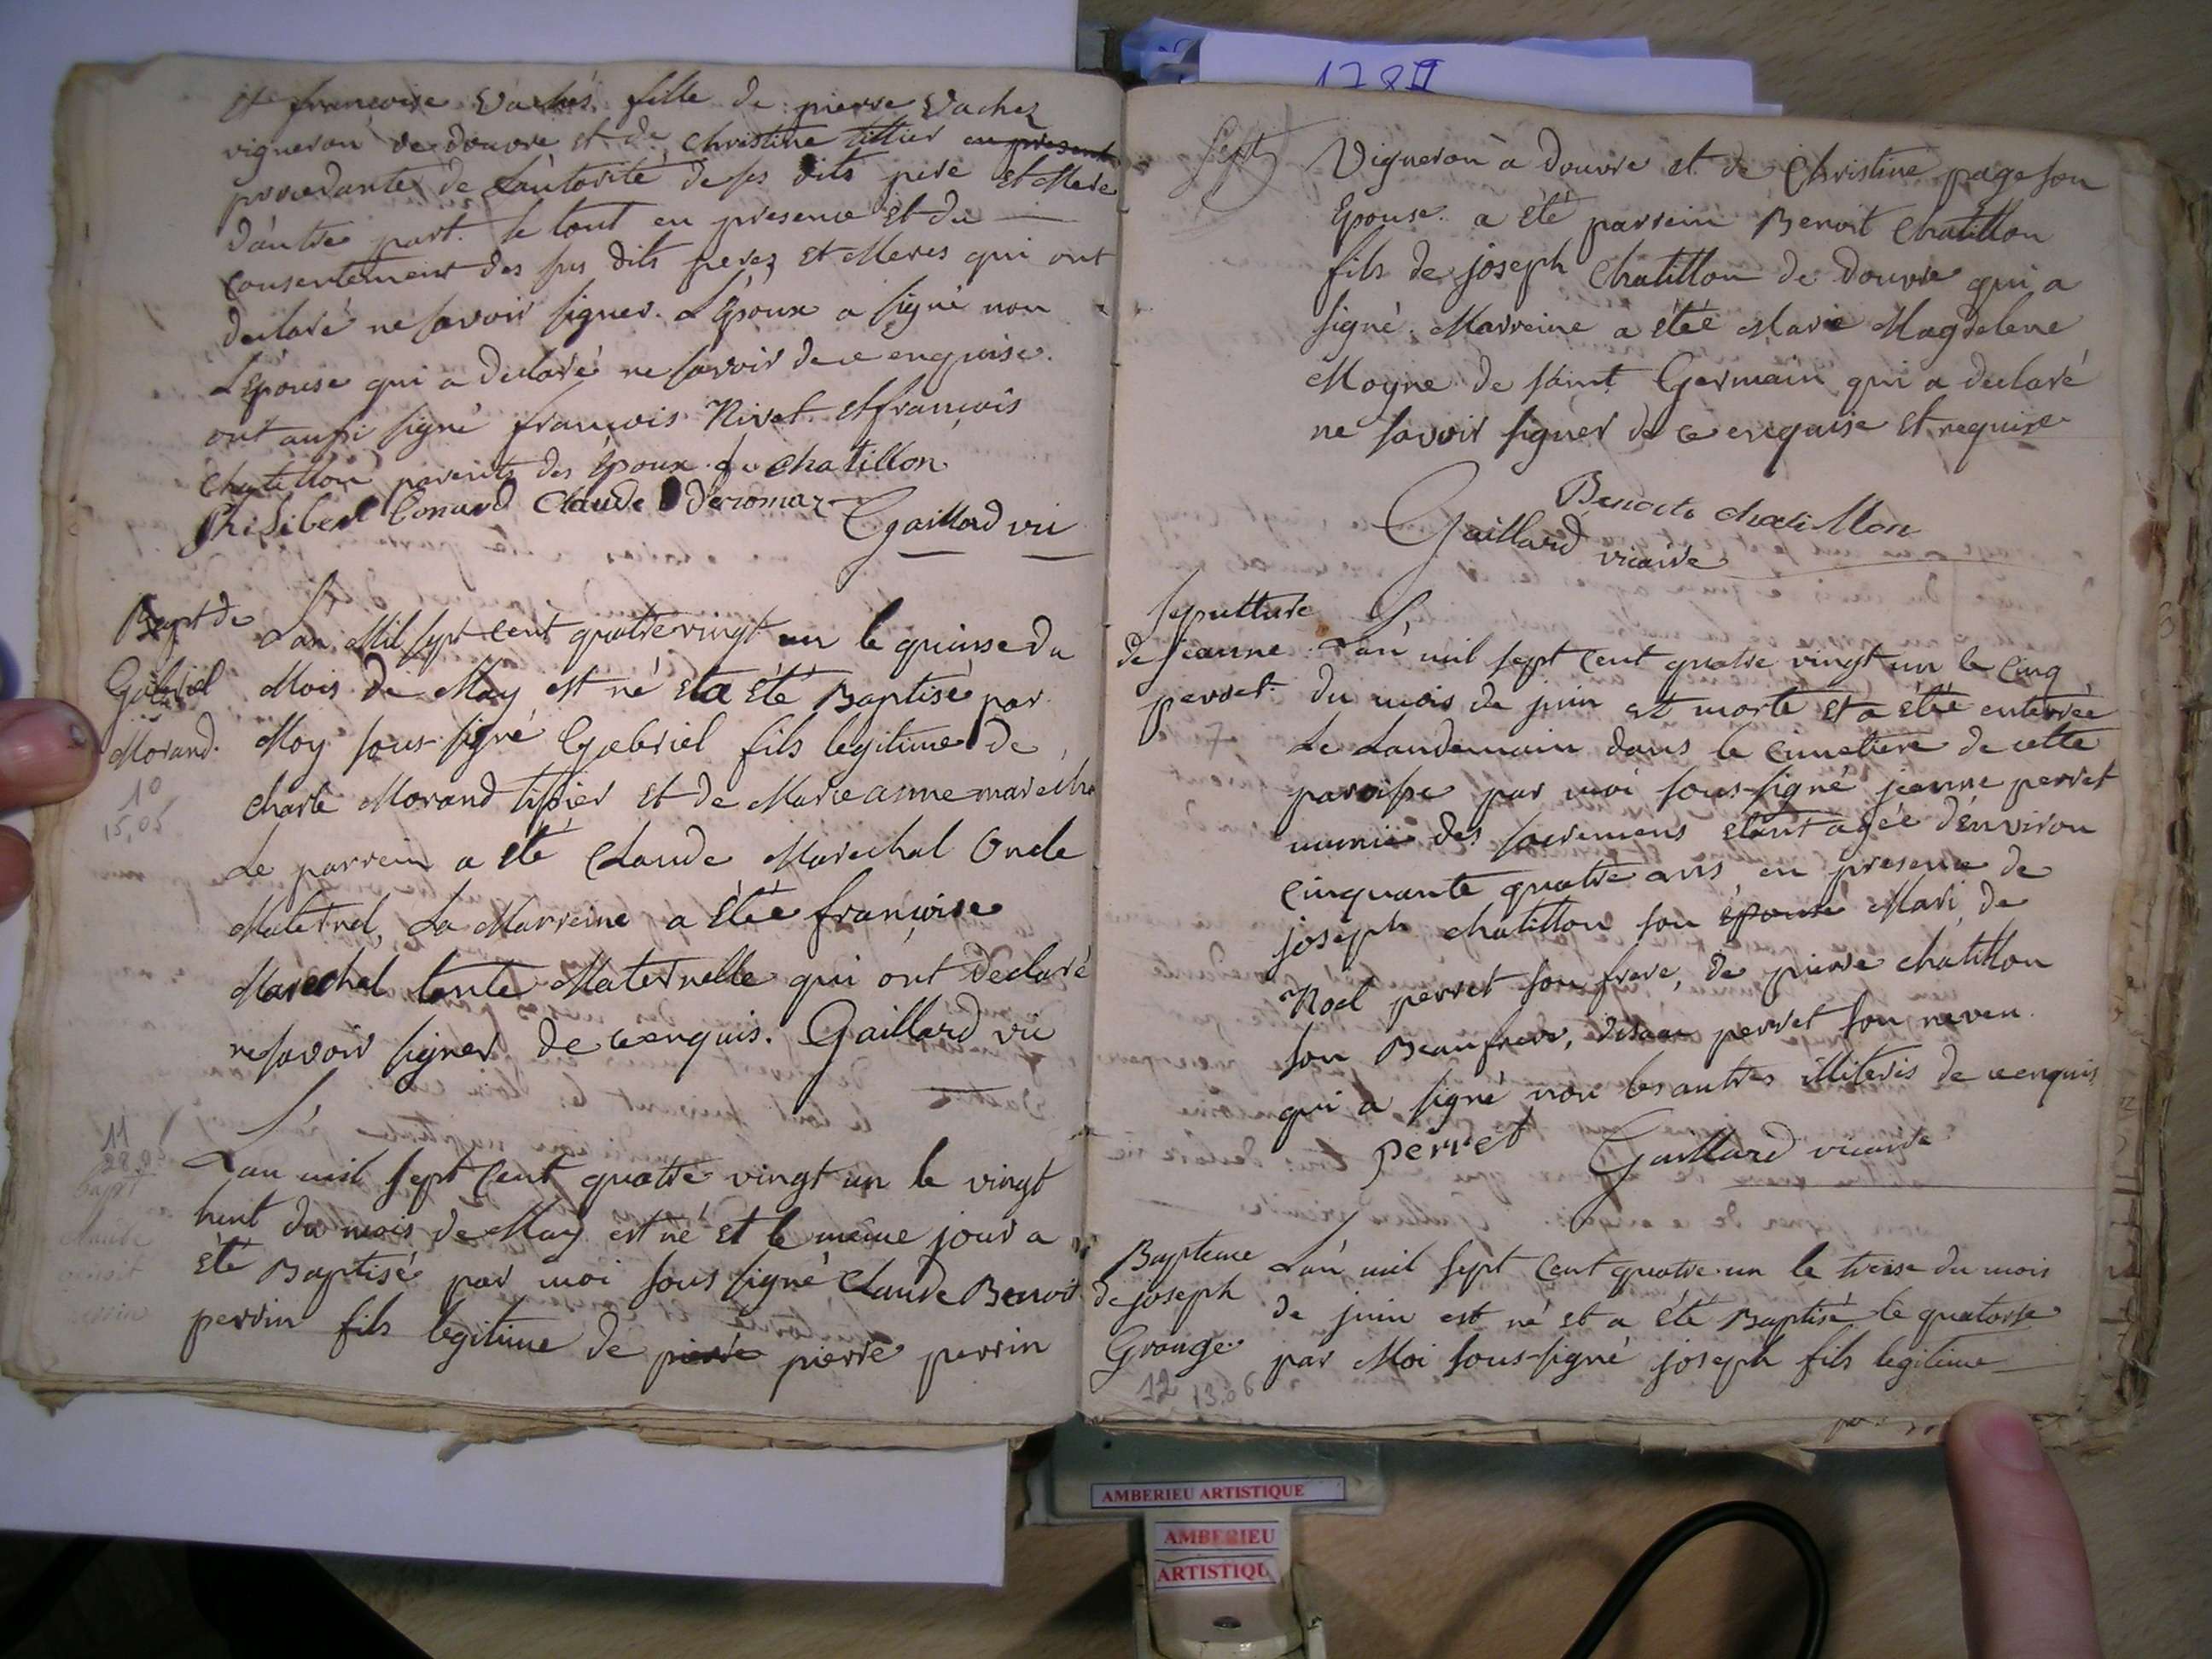 et francoise Vachés fille de pierre Vachez
vigneron de douvre et de Christine tillier en presente
procedante de L'autorité de ses dits pere et Mere
d'autre part. le tout en presence et du
Consentement des sus dits peres et Meres qui ont
declaré ne savoir signer. L'Epoux a signé non
L'Epouse qui a declaré ne savoir de ce enquise.
ont aussi signé francois Nivet et françois
Chatillon parents des Epoux. f. chatillon
Philibert Conard Claude Deromaz Gaillard vic
Bapt de
Gabriel
Morand.
10
15,05
L'an Mil sept cent quatrevingt un le quinse du
Mois de May est né eta été Baptisé par
Moy sous-signé Gabriel fils legitime de
Charle Morand tissier et de Marieanne marécha
Le parrein a été Claude Marechal Oncle
Maternel, La Marreine a étée françoise
Marechal tante Maternelle qui ont declaré
ne savoir signer de ce enquis. Gaillard vic
11
28.05
bapt
claude
L'an mil sept Cent quatre vingt un le vingt
huit du mois de May est né et le même jour a
été Baptisé par moi sous signé Claude Benoit
perrin fils legitime de pierre pierre perrin
1781
Sept
Vigneron à douvre et de Christine page son
Epouse. a été parrein Benoit Chatillon
fils de joseph Chatillon de Douvre qui a
signé. Marreine a étée Marie Magdelene
Moyne de saint Germain qui a declaré
ne savoir signer de ce enquise et requise
Benoit chatillon
Gaillard vicaire
sepulture
de jeanne
perret.
L'an mil sept cent quatre vingt un le Cinq
du mois de juin est morte et a étée enterrée
Le Landemain dans le Cimetiere de cette
paroisse par moi sous-signé jeanne perret
munie des sacremens etant agée d'environ
Cinquante quatre ans en presence de
joseph chatillon son epoux Mari, de
Noel perret son frere, de pierre chatillon
son Beaufrere, disaac perret son neveu
qui a signé non les autres illiteris de ce enquis
perret Gaillard vicaire
Bapteme
de joseph
Grange.
12 13.06
L'an mil sept Cent quatre un le treise du mois
de juin est né et a été Baptisé le quatorse
par Moi sous-signé joseph fils legitime
AMBERIEU ARTISTIQUE
AMBERIEU
ARTISTIQU